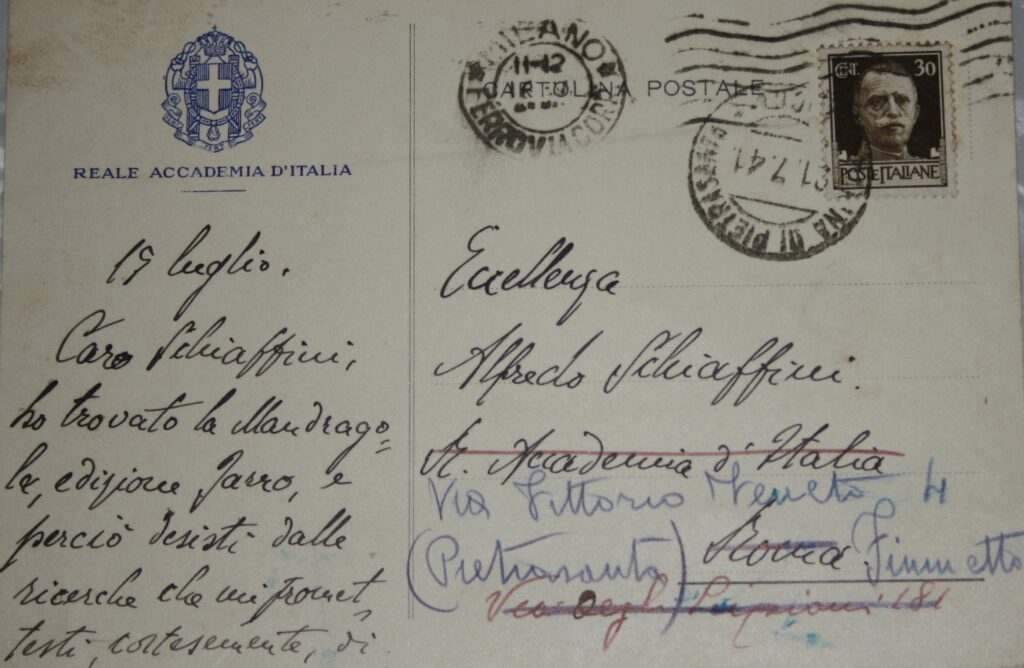 REALE ACCADEMIA D'ITALIA
19 luglio.
Caro Schiaffini,
ho trovato la Mandrago=
la, edizione Jarro, e
perciò desisti dalle
ricerche che mi promet-
testi, cortesemente, di
MILANO
11-12
FERROVIA CORR
CARTOLINA POSTALE
21.7.41
MARINA DI PIETRASANTA
CENT. 30
POSTE ITALIANE
Eccellenza
Alfredo Schiaffini.
R. Accademia d'Italia
Via Vittorio Veneto 4
(Pietrasanta) Roma. Fiumetto
Via degli Scipioni 181